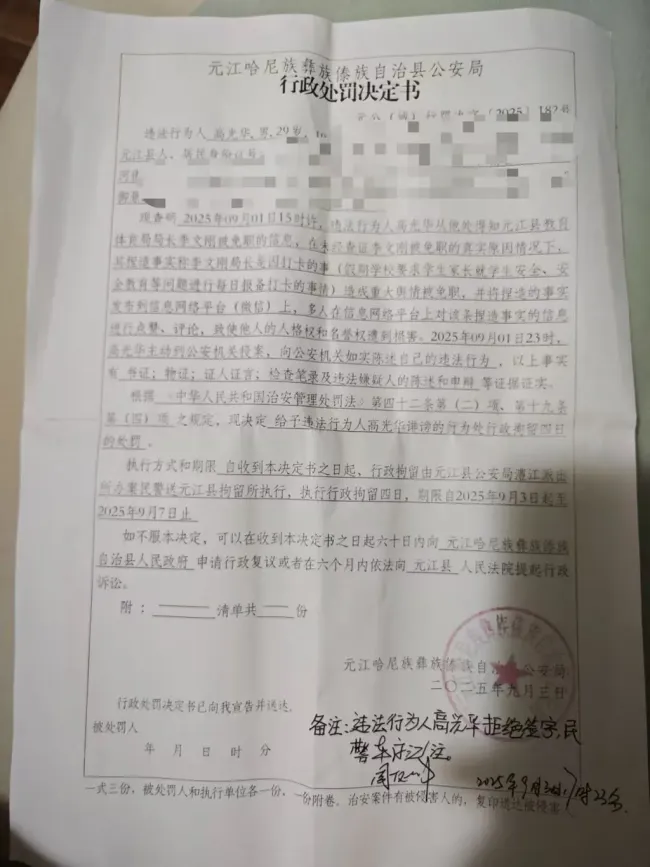 元江哈尼族彝族傣族自治县公安局
行政处罚决定书
〔2025〕182号
违法行为人 高光华,男,29岁,
元江县人、居民身份证号
现查明 2025年09月01日15时许,违法行为人高光华从他处得知元江县教育
体育局局长李文刚被免职的信息,在未经查证李文刚被免职的真实原因情况下,
其捏造事实称李文刚局长是因打卡的事(假期学校要求学生家长就学生安全、安
全教育等问题进行每日报备打卡的事情)造成重大舆情被免职,并将捏造的事实
发布到信息网络平台(微信)上,多人在信息网络平台上对该条捏造事实的信息
进行点赞、评论,致使他人的人格权和名誉权遭到损害。2025年09月01日23时,
高光华主动到公安机关投案,向公安机关如实陈述自己的违法行为,以上事实
有 书证;物证;证人证言;检查笔录及违法嫌疑人的陈述和申辩 等证据证实。
根据 《中华人民共和国治安管理处罚法》第四十二条第(二)项、第十九条
第(四)项 之规定,现决定 给予违法行为人高光华诽谤的行为处行政拘留四日
的处罚 。
执行方式和期限 自收到本决定书之日起、行政拘留由元江县公安局澧江派出
所办案民警送元江县拘留所执行,执行行政拘留四日,期限自2025年9月3日起至
2025年9月7日止
如不服本决定,可以在收到本决定书之日起六十日内向 元江哈尼族彝族傣族
自治县人民政府 申请行政复议或者在六个月内依法向 元江县 人民法院提起行政
诉讼。
附: 清单共 份
元江哈尼族彝族傣族自治县公安局
二〇二五年九月三日
行政处罚决定书已向我宣告并送达。
被处罚人
年 月 日 时 分
备注:违法行为人高光华拒绝签字,民
警
2025年9月3日
一式三份,被处罚人和执行单位各一份,一份附卷。治安案件有被侵害人的,复印送达被侵害人